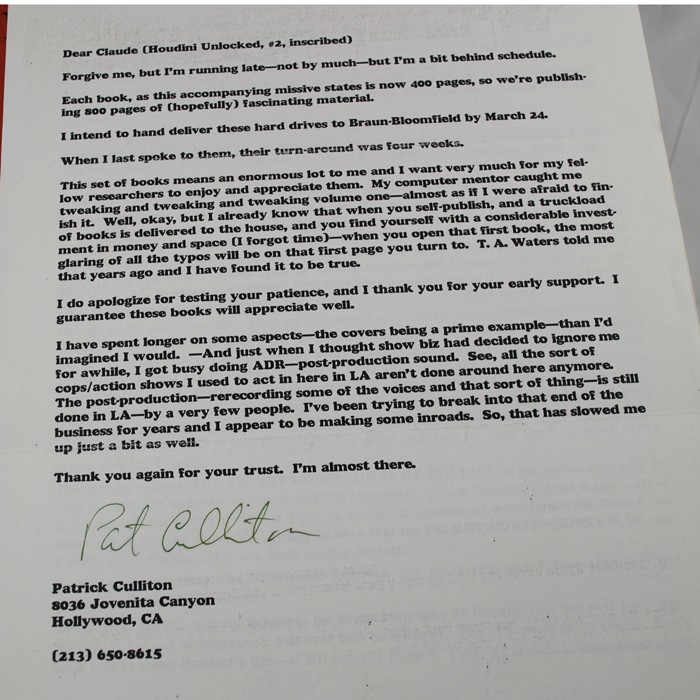 Dear Claude (Houdini Unlocked, #2, inscribed)
Forgive me, but I'm running late—not by much—but I'm a bit behind schedule.
Each book, as this accompanying missive states is now 400 pages, so we're publish-
ing 800 pages of (hopefully) fascinating material.
I intend to hand deliver these hard drives to Braun-Bloomfield by March 24.
When I last spoke to them, their turn-around was four weeks.
This set of books means an enormous lot to me and I want very much for my fel-
low researchers to enjoy and appreciate them. My computer mentor caught me
tweaking and tweaking and tweaking volume one—almost as if I were afraid to fin-
ish it. Well, okay, but I already know that when you self-publish, and a truckload
of books is delivered to the house, and you find yourself with a considerable invest-
ment in money and space (I forgot time)—when you open that first book, the most
glaring of all the typos will be on that first page you turn to. T. A. Waters told me
that years ago and I have found it to be true.
I do apologize for testing your patience, and I thank you for your early support. I
guarantee these books will appreciate well.
I have spent longer on some aspects—the covers being a prime example—than I'd
imagined I would. —And just when I thought show biz had decided to ignore me
for awhile, I got busy doing ADR—post-production sound. See, all the sort of
cops/action shows I used to act in here in LA aren't done around here anymore.
The post-production—rerecording some of the voices and that sort of thing—is still
done in LA—by a very few people. I've been trying to break into that end of the
business for years and I appear to be making some inroads. So, that has slowed me
up just a bit as well.
Thank you again for your trust. I'm almost there.
Pat Culliton
Patrick Culliton
8036 Jovenita Canyon
Hollywood, CA
(213) 650-8615